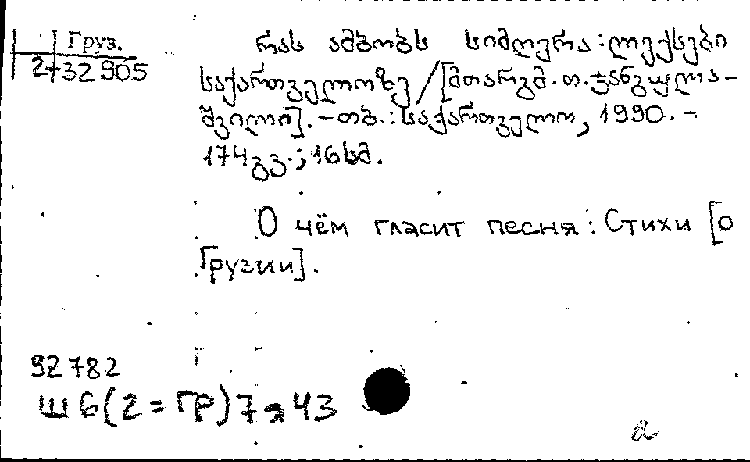 Груз.
2-32905
რას ამბობს სიმღერა : ლექსები
საქართველოზე / [მთარგმ. თ. ჯანგულა-
შვილი]. - თბ. : საქართველო, 1990. -
174 გვ. ; 16 სმ.
О чём гласит песня : Стихи [о
Грузии].
92782
Ш6(2=ГР)7я43
a